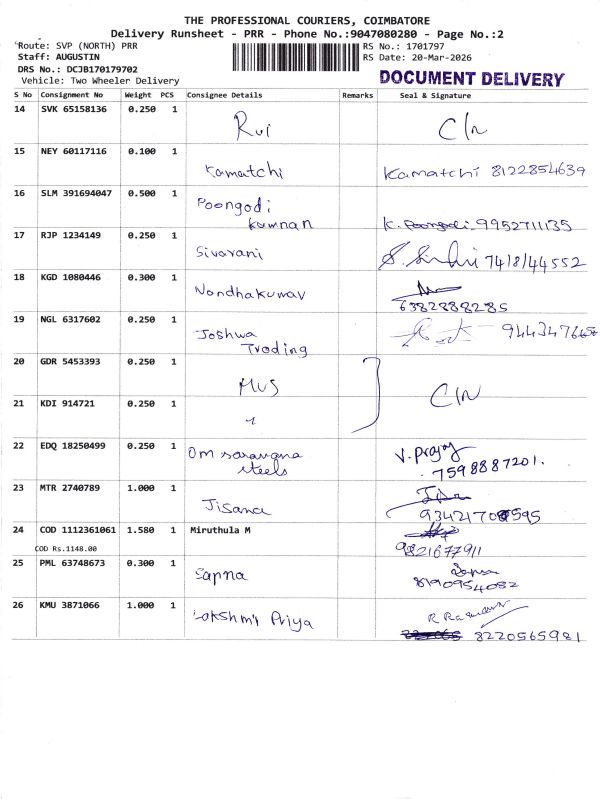 THE PROFESSIONAL COURIERS, COIMBATORE
Delivery Runsheet - PRR - Phone No.:9047080280 - Page No.:2
Route: SVP (NORTH) PRR
RS No.: 1701797
Staff: AUGUSTIN
RS Date: 20-Mar-2026
DRS No.: DCJB170179702
Vehicle: Two Wheeler Delivery
DOCUMENT DELIVERY
S No Consignment No Weight PCS Consignee Details Remarks Seal & Signature
14 SVK 65158136 0.250 1
15 NEY 60117116 0.100 1 Kamatchi Kamatchi 8122854639
16 SLM 391694047 0.500 1 Poongodi
Kannan K. Poongodi 9952711135
17 RJP 1234149 0.250 1 Sivarani
18 KGD 1080446 0.300 1 Nondhakumav
6382888285
19 NGL 6317602 0.250 1 Joshwa
Trading
20 GDR 5453393 0.250 1
21 KDI 914721 0.250 1
22 EDQ 18250499 0.250 1 Om saravana
steels
7598887201.
23 MTR 2740789 1.000 1 Jisana
24 COD 1112361061 1.580 1 Miruthula M
COD Rs.1148.00
9821677911
25 PML 63748673 0.300 1 Sapna
8190954082
26 KMU 3871066 1.000 1 Lakshmi Priya
8220565981